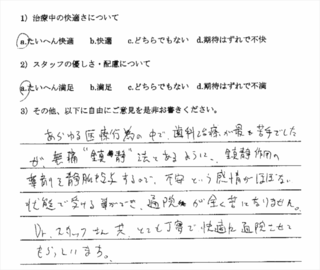 1）治療中の快適さについて
a.たいへん快適 b.快適 c.どちらでもない d.期待はずれで不快
2）スタッフの優しさ・配慮について
a.たいへん満足 b.満足 c.どちらでもない d.期待はずれで不満
3）その他、以下に自由にご意見を是非お書きください。
あらゆる医療行為の中で、歯科治療が最も苦手でした
が無痛“鎮静”法とあるように、鎮静作用の
薬剤を静脈投与するので、不安という感情がほぼない
状態で受ける事ができ、通院が全く苦になりません。
Dr. スタッフさん共、とても丁寧で快適な通院させて
もらっています。